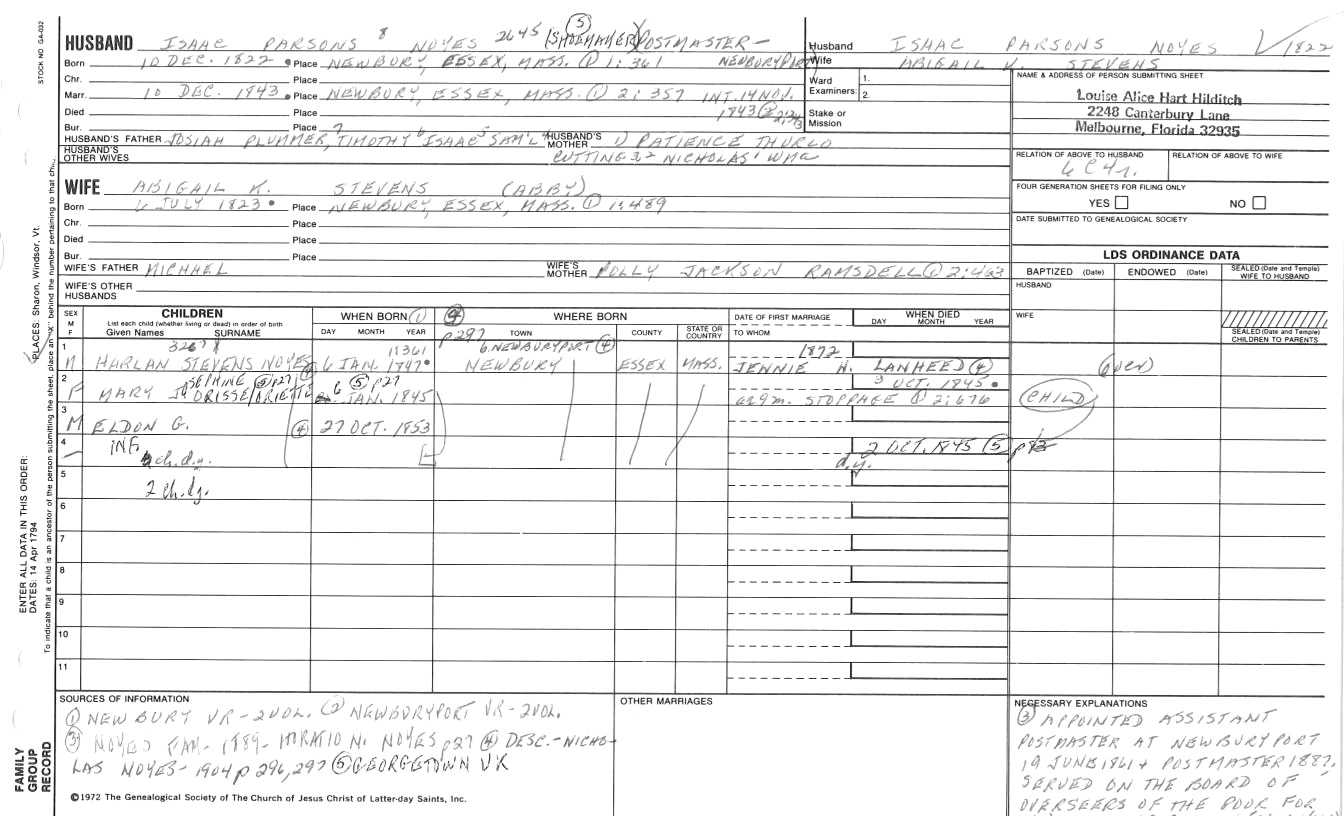 STOCK NO. GA-032
HUSBAND ISAAC PARSONS 8 NOYES 2645 (5) (SHOEMAKER) POSTMASTER -
Born 10 DEC. 1822 Place NEWBURY, ESSEX, MASS. (1) 1:361 NEWBURYPORT)
Chr. Place
Marr. 10 DEC. 1843 Place NEWBURY, ESSEX, MASS. (1) 2:357 INT. 14 NOV.
Died Place 1843 (2) 2:343
Bur. Place
HUSBAND'S FATHER JOSIAH PLUMMER, 7 TIMOTHY 6 ISAAC 5 SAM'L 4 HUSBAND'S MOTHER 1) PATIENCE THURLO
HUSBAND'S OTHER WIVES CUTTING 3 2 NICHOLAS' WMC
WIFE ABIGAIL K. STEVENS (ABBY)
Born 6 JULY 1823 Place NEWBURY, ESSEX, MASS. (1) 1:489
Chr. Place
Died Place
Bur. Place
WIFE'S FATHER MICHAEL WIFE'S MOTHER POLLY JACKSON RAMSDELL (1) 2:463
WIFE'S OTHER HUSBANDS
Husband ISAAC PARSONS NOYES 1822
Wife ABIGAIL K. STEVENS
Ward 1.
Examiners: 2.
Stake or
Mission
NAME & ADDRESS OF PERSON SUBMITTING SHEET
Louise Alice Hart Hilditch
2248 Canterbury Lane
Melbourne, Florida 32935
RELATION OF ABOVE TO HUSBAND RELATION OF ABOVE TO WIFE
6C4r.
FOUR GENERATION SHEETS FOR FILING ONLY
YES NO
DATE SUBMITTED TO GENEALOGICAL SOCIETY
LDS ORDINANCE DATA
BAPTIZED (Date) ENDOWED (Date) SEALED (Date and Temple) WIFE TO HUSBAND
HUSBAND
WIFE
SEALED (Date and Temple) CHILDREN TO PARENTS
SEX M F CHILDREN WHEN BORN (1) (4) WHERE BORN DATE OF FIRST MARRIAGE WHEN DIED
List each child (whether living or dead) in order of birth
Given Names SURNAME DAY MONTH YEAR p297 TOWN COUNTY STATE OR COUNTRY TO WHOM DAY MONTH YEAR
1 3267 1:361 6. NEWBURYPORT (4) 1872
M HARLAN STEVENS NOYES 6 JAN. 1847 NEWBURY ESSEX MASS. JENNIE H. LANHEED (4) (over)
2 JOSEPHINE (5) p27 6 (5) p27 3 OCT. 1845
F MARY DRISSE/ORIETTE JAN. 1845 a29m. STOPPAGE (1) 2:676 (CHILD)
3
M ELDON G. (4) 27 OCT. 1853
4 INF. 2 OCT. 1845 (5)
ch.d.y. d.y.
5 2 ch.d.y.
6
7
8
9
10
11
PLACES: Sharon, Windsor, Vt.
ENTER ALL DATA IN THIS ORDER:
DATES: 14 Apr 1794
To indicate that a child is an ancestor of the person submitting the sheet, place an "X" behind the number pertaining to that
FAMILY GROUP RECORD
SOURCES OF INFORMATION
(1) NEWBURY VR-2VOL. (2) NEWBURYPORT VR-2VOL.
(3) NOYES FAM- 1889- HORATIO N. NOYES p27 (4) DESC.-NICHO-
LAS NOYES-1904 p 296,297 (5) GEORGETOWN VR
OTHER MARRIAGES
NECESSARY EXPLANATIONS
(3) APPOINTED ASSISTANT
POSTMASTER AT NEWBURYPORT
19 JUNE 1861 + POSTMASTER 1887.
SERVED ON THE BOARD OF
OVERSEERS OF THE POOR FOR
©1972 The Genealogical Society of The Church of Jesus Christ of Latter-day Saints, Inc.